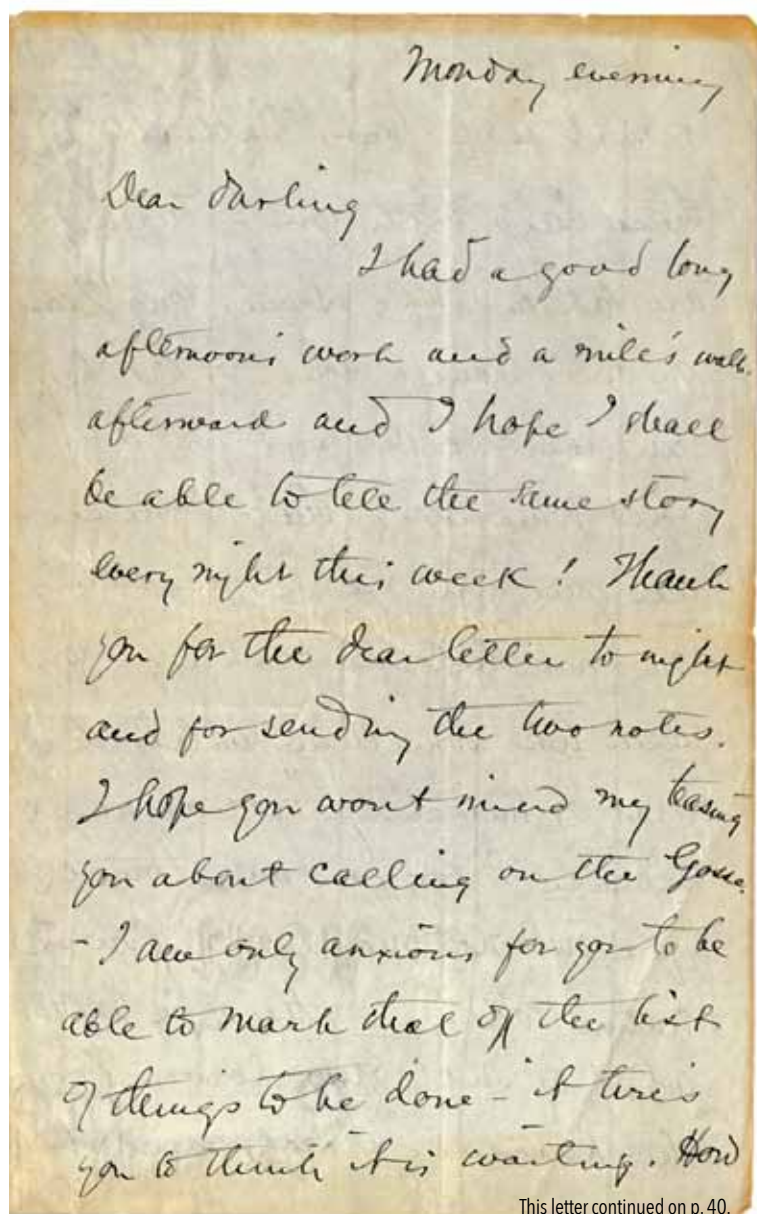 Monday evening
Dear darling
I had a good long
afternoon's work and a mile's walk
afterward and I hope I shall
be able to tell the same story
every night this week! Thank
you for the dear letter to night
and for sending the two notes.
I hope you wont mind my teasing
you about calling on the
- I am only anxious for you to be
able to mark that off the list
of things to be done - it tires
you to think it is waiting. How
This letter continued on p. 40.